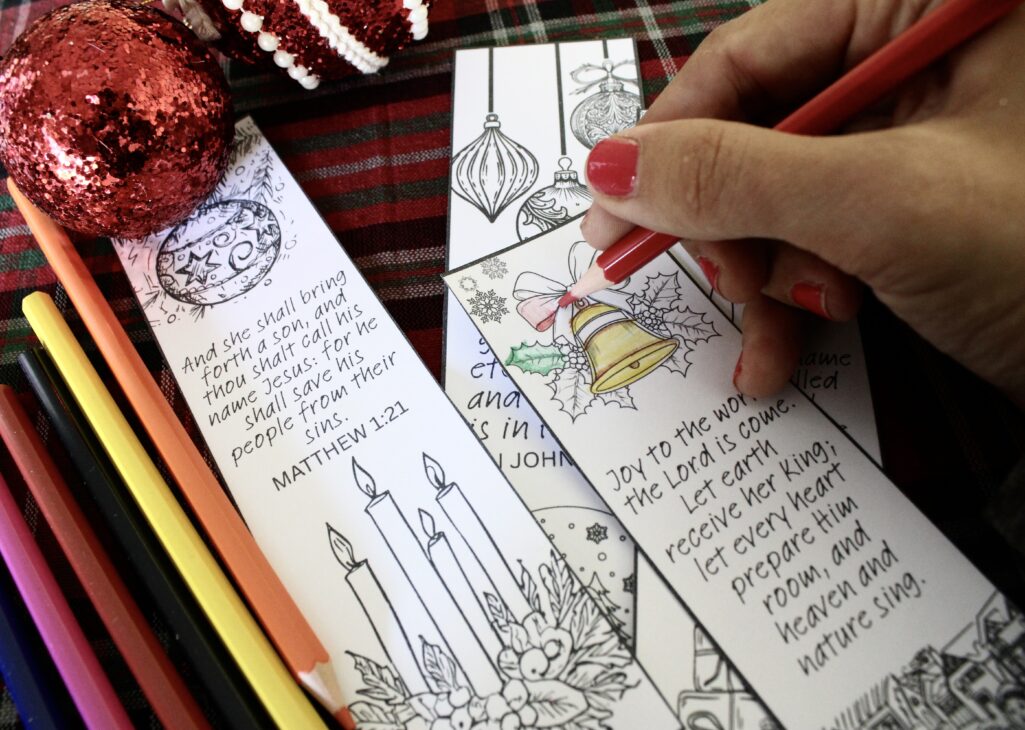 And she shall bring
forth a son, and
thou shalt call his
name Jesus: for he
shall save his
people from their
sins.
MATTHEW 1:21
and
is in
JOHN
name
Joy to the
the Lord is come.
Let earth
receive her King;
let every heart
prepare Him
room, and
heaven and
nature sing.